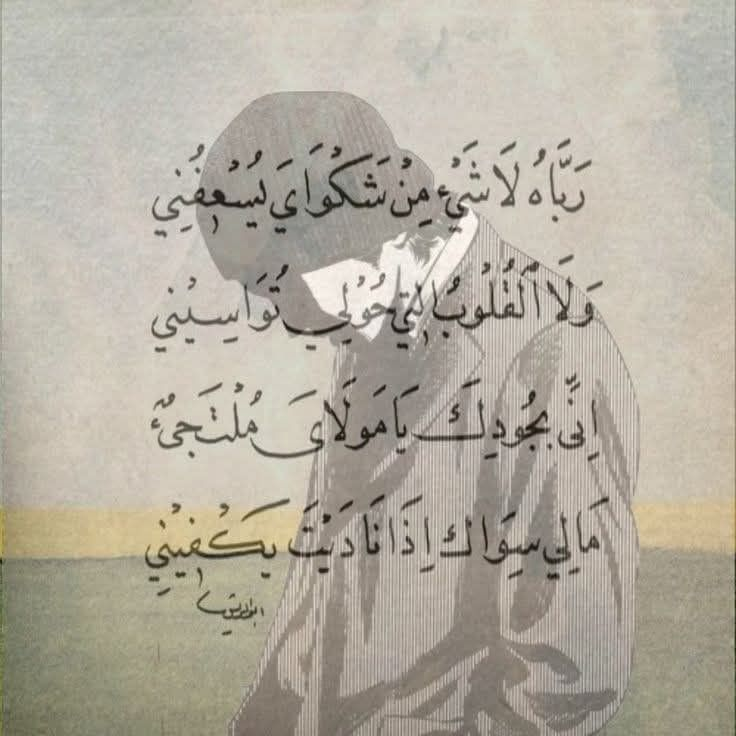 رَبَّاهُ لَا شَيْءَ مِنْ شَكْوَايَ يُسْعِفُنِي
وَلَا الْقُلُوبُ الَّتِي حَوْلِي تُوَاسِينِي
إِنِّي بِجُودِكَ يَا مَولَايَ مُلْتَجِئٌ
مَالِي سِوَاكَ إِذَا نَادَيْتُ يَكْفِينِي